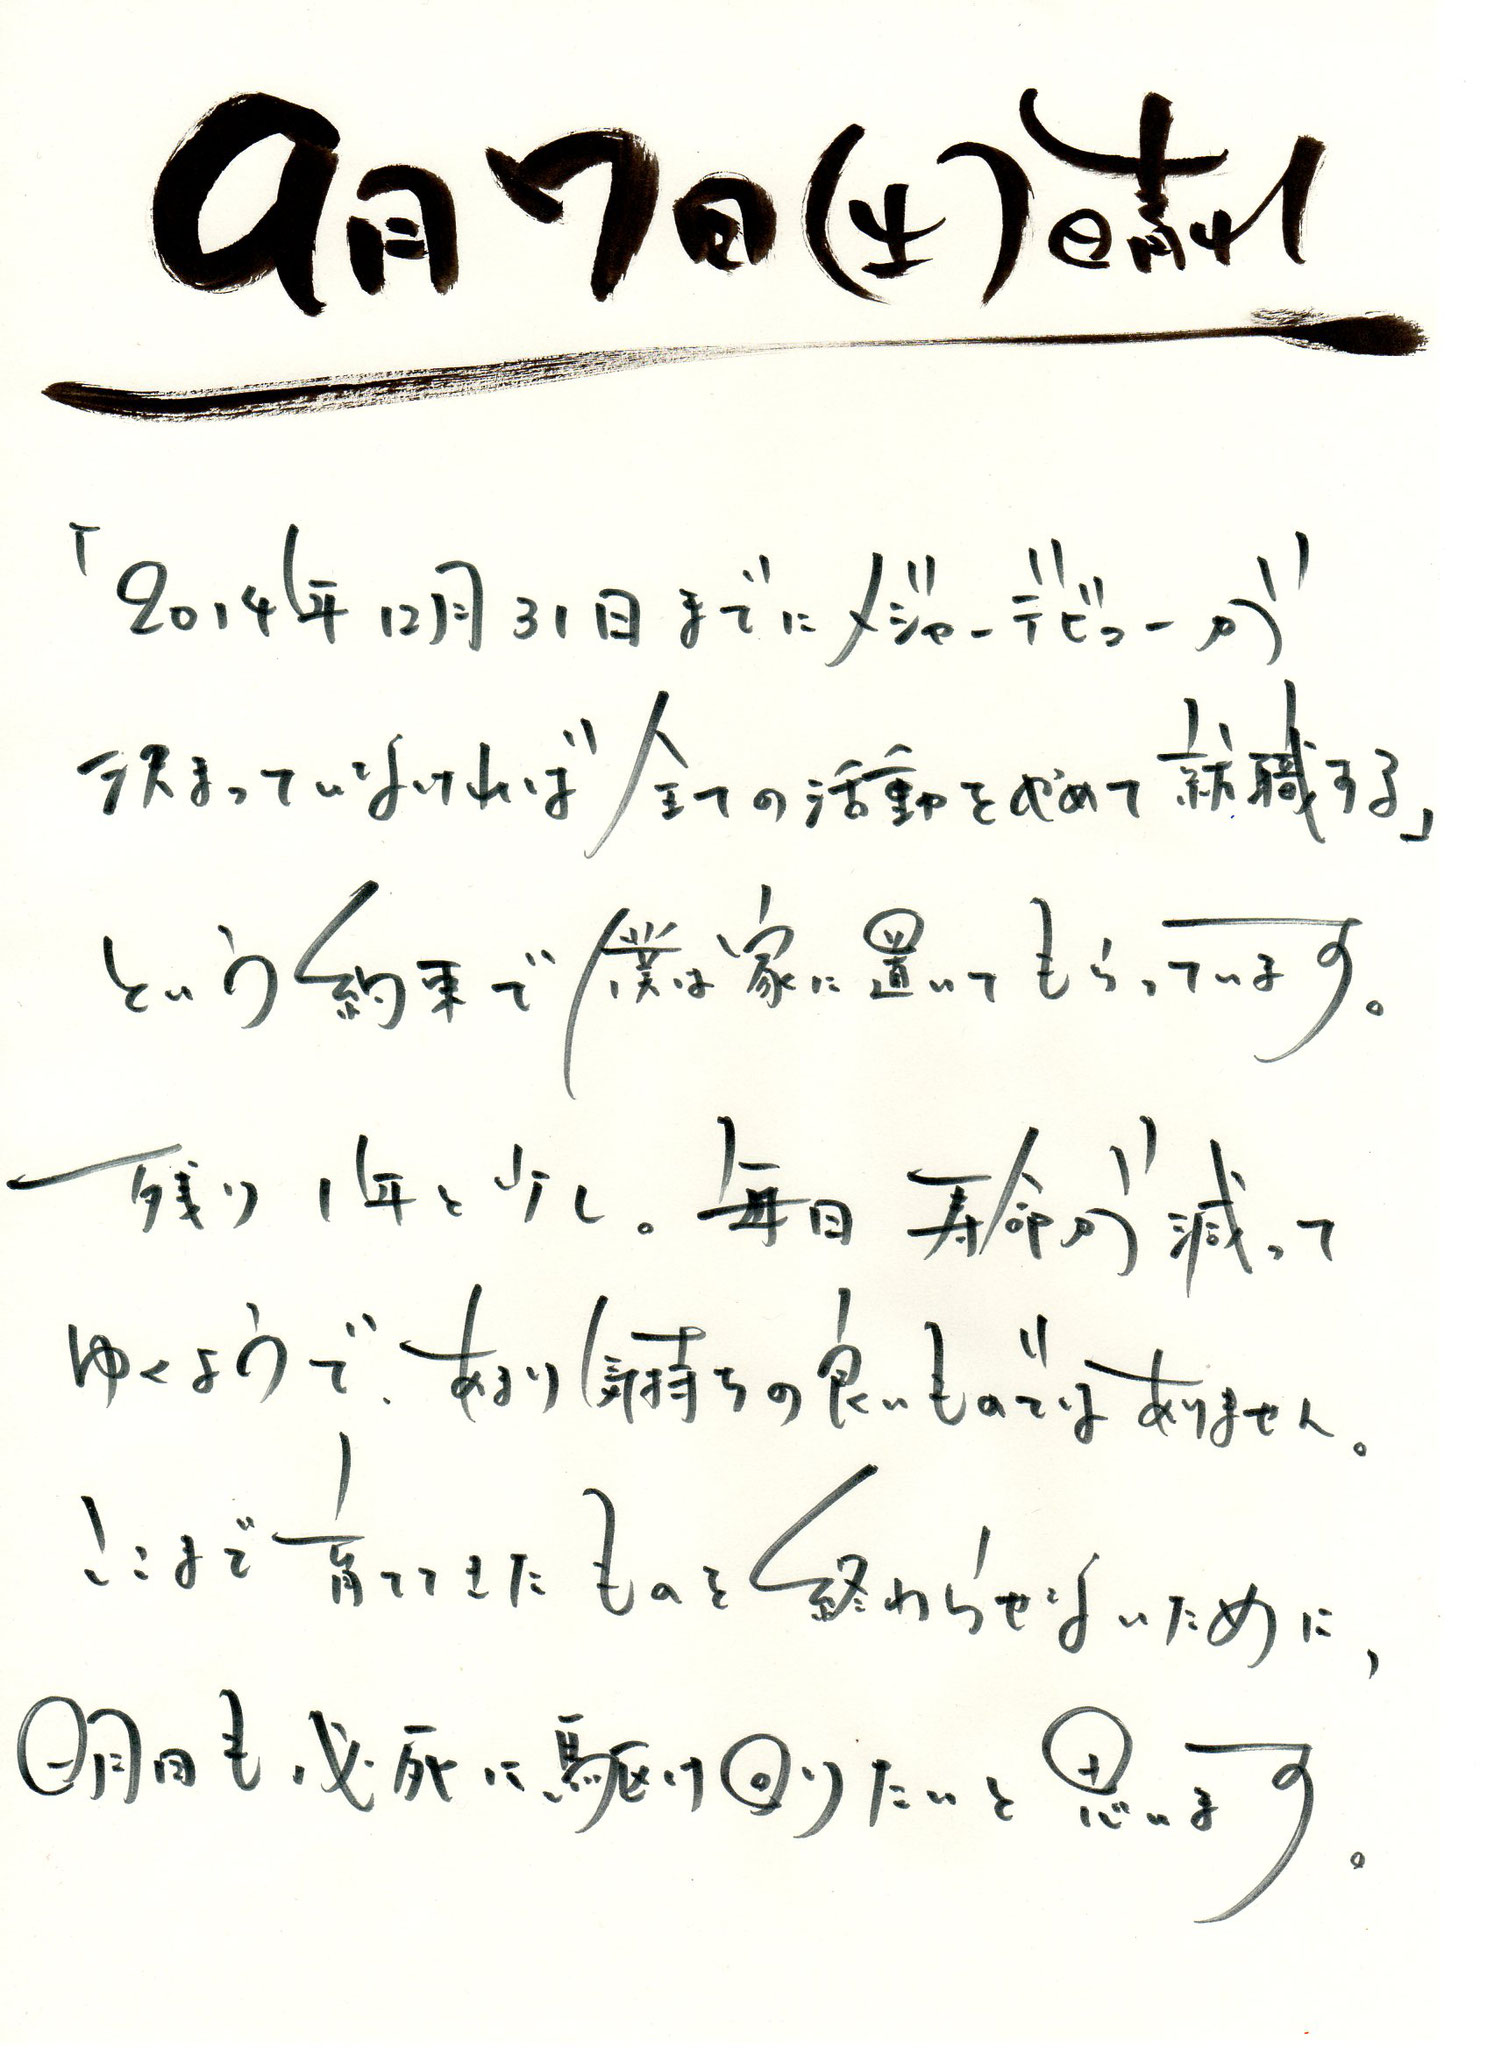 9月7日(土)晴れ
「2014年12月31日までにメジャーデビューが
決まっていなければ全ての活動をやめて就職する」
という約束で僕は家に置いてもらっています。
残り1年と少し。毎日寿命が減って
ゆくようで、あまり気持ちの良いものではありません。
ここまで育ててきたものを終わらせないために、
明日も必死に駆け回りたいと思います。